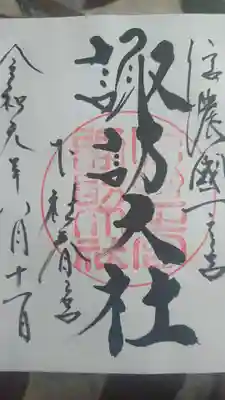 信濃國一之宮
諏訪大社
下社春宮
令和元年八月十一日